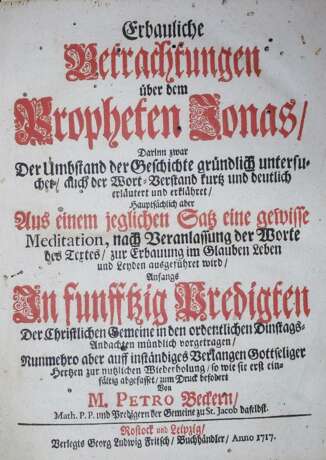 Erbauliche
Betrachtungen
über dem
Propheten Jonas/
Darinn zwar
Der Umbstand der Geschichte gründlich untersu-
chet/ auch der Wort-Verstand kurtz und deutlich
erläutert und erklähret/
Hauptsächlich aber
Aus einem jeglichen Satz eine gewisse
Meditation, nach Veranlassung der Worte
des Textes/ zur Erbauung im Glauben Leben
und Leyden ausgeführet wird/
Anfangs
In funfftzig Predigten
Der Christlichen Gemeine in den ordentlichen Dinstags-
Andachten mündlich vorgetragen/
Nunmehro aber auff inständiges Verlangen Gottseliger
Hertzen zur nutzlichen Wiederholung/ so wie sie erst ein-
fältig abgefasset/ zum Druck befodert
Von
M. PETRO Beckern/
Math. P. P. und Predigern der Gemeine zu St. Jacob daselbst.
Rostock und Leipzig/
Verlegts Georg Ludwig Fritsch/ Buchhändler/ Anno 1717.